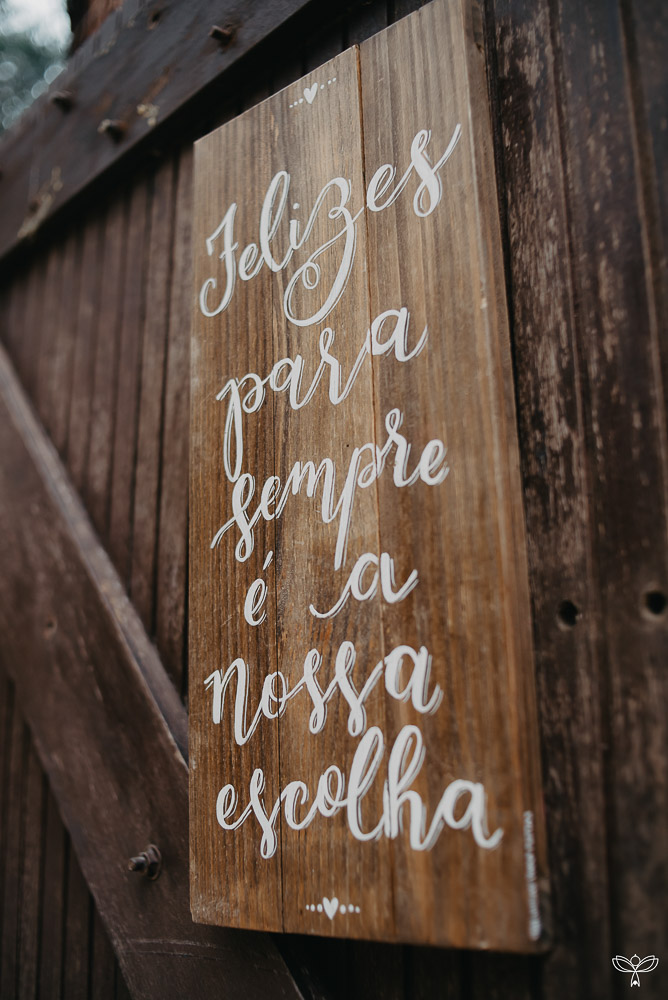 Felizes
para
sempre
é a
nossa
escolha